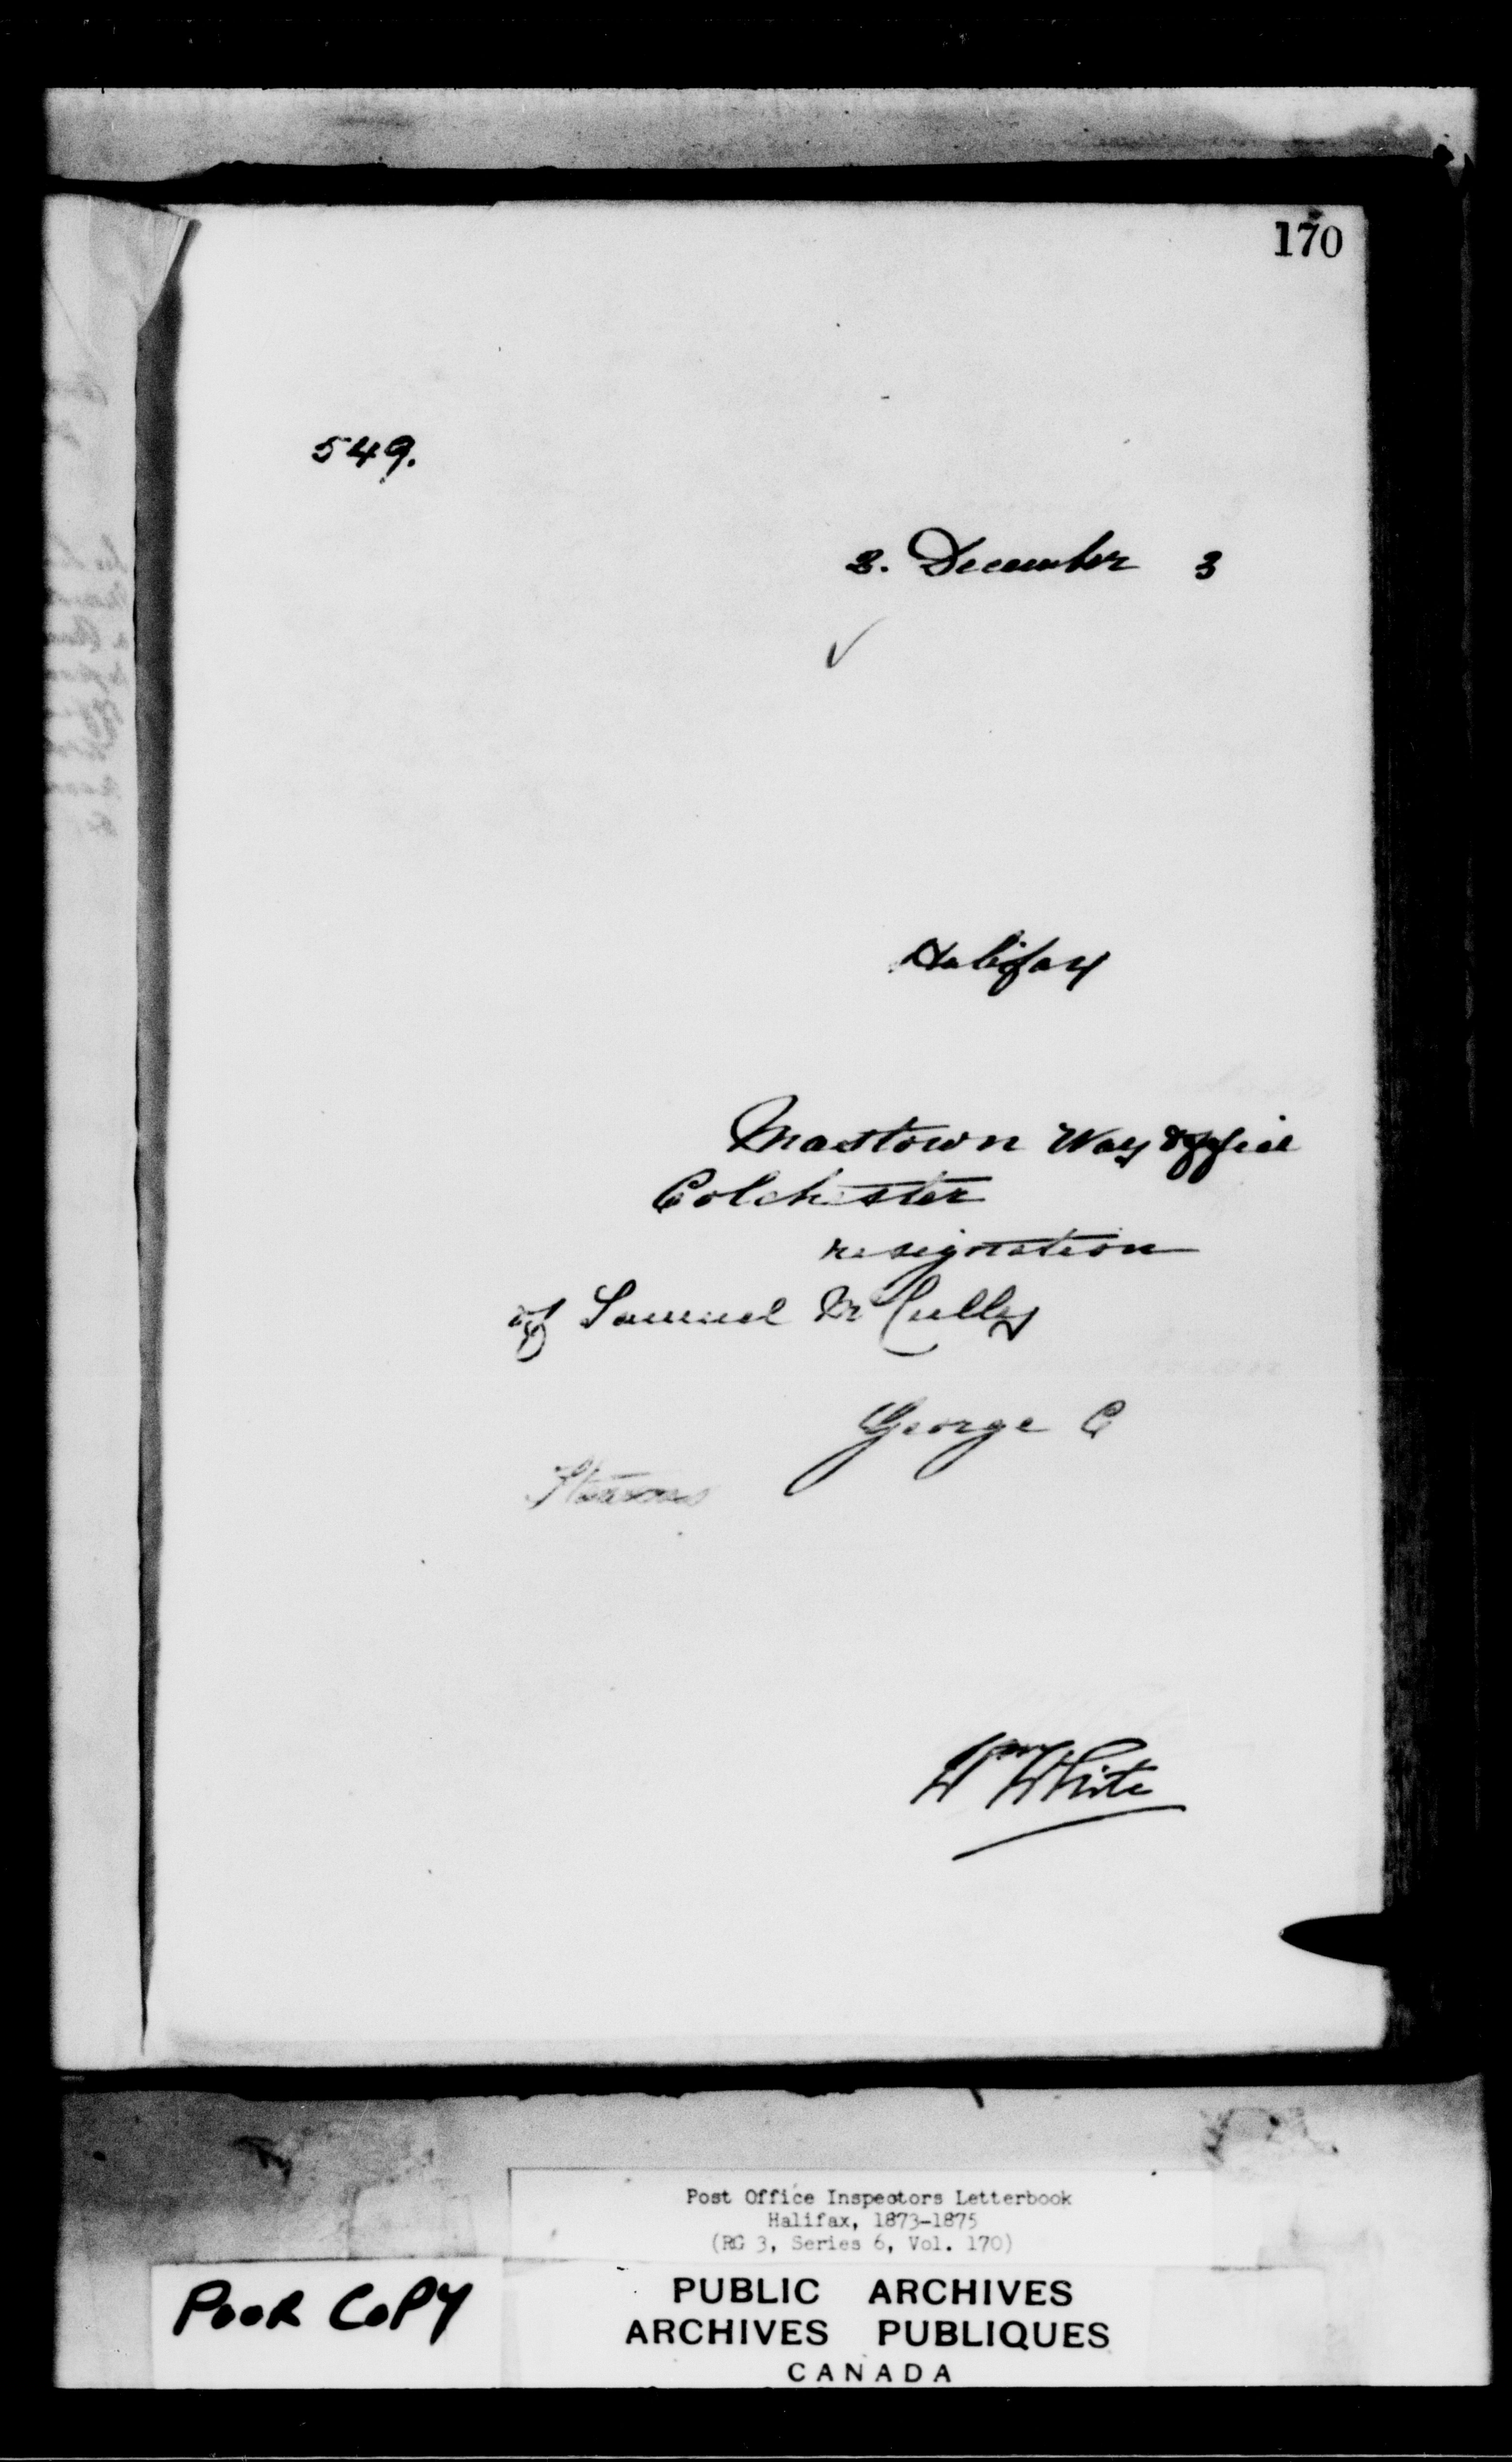 170
549.
3. December 3
✓
Halifax
Mastown Way Office
Colchester
resignation
of Samuel McCully
George C
Wm White
Post Office Inspectors Letterbook
Halifax, 1873-1875
(RG 3, Series 6, Vol. 170)
POOR COPY
PUBLIC ARCHIVES
ARCHIVES PUBLIQUES
CANADA